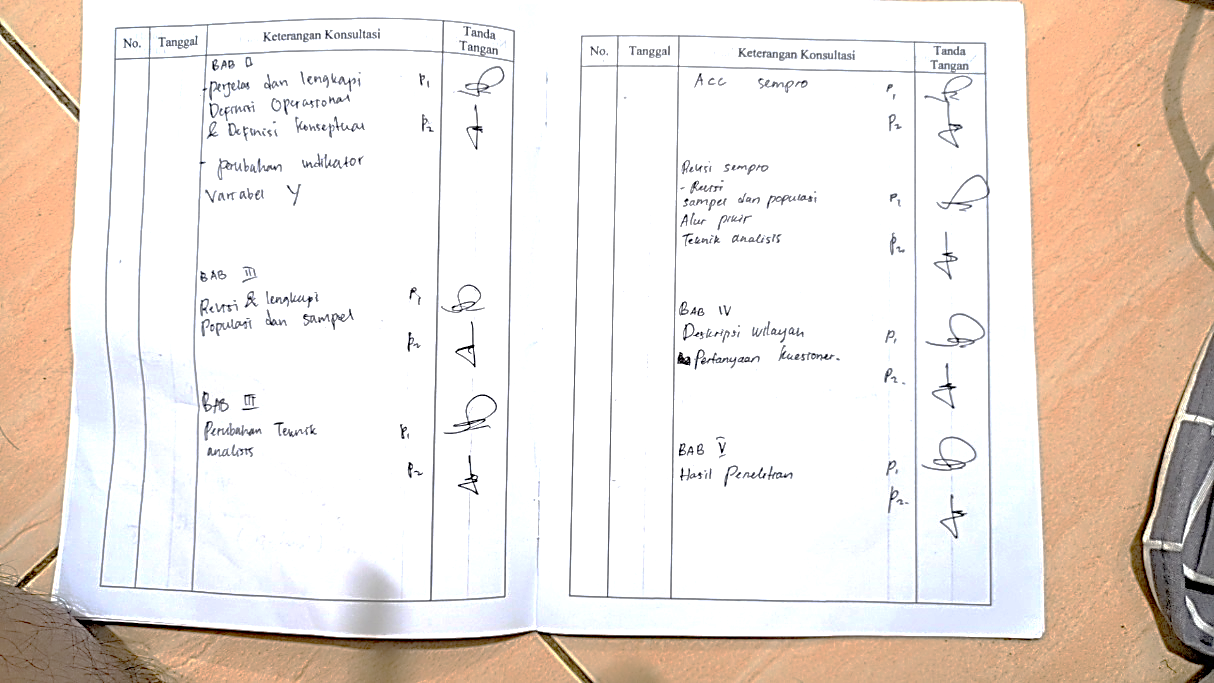 No. Tanggal Keterangan Konsultasi Tanda Tangan
BAB II
- perjelas dan lengkapi P1
Definisi Operasional
& Definisi Konseptual P2
- perubahan indikator
Variabel Y
BAB III
Revisi & lengkapi P1
Populasi dan sampel
P2
BAB III
Perubahan Teknik P1
analisis
P2
No. Tanggal Keterangan Konsultasi Tanda Tangan
Acc sempro P1
P2
Revisi sempro
- Revisi
sampel dan populasi P1
Alur pikir
Teknik analisis P2
BAB IV
Deskripsi wilayah P1
Pertanyaan kuesioner.
P2.
BAB V
Hasil Penelitian P1
P2.